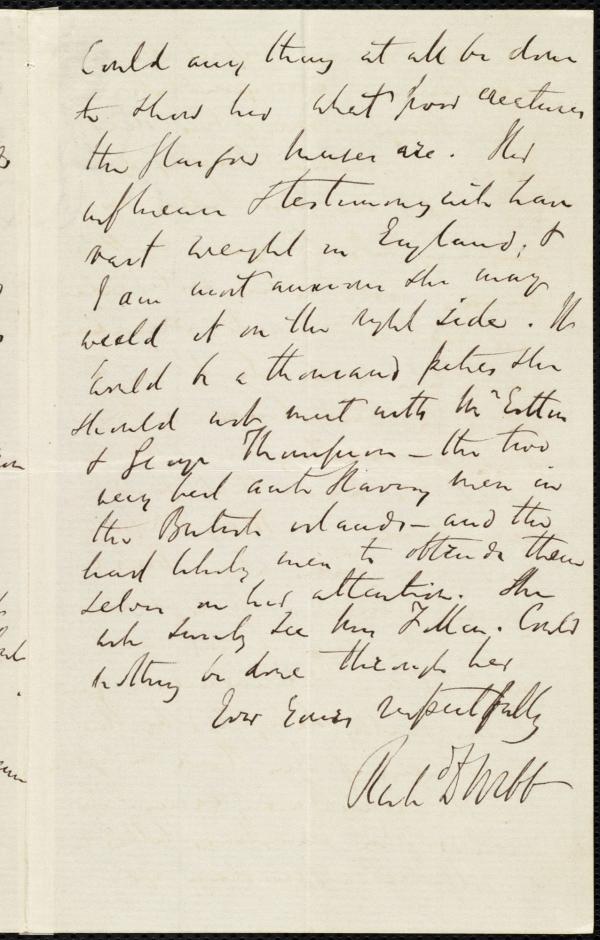 Could any thing at all be done
to show her what poor creatures
the Glasgow houses are. Her
influence & testimony will have
vast weight in England; &
I am most anxious she may
wield it on the right side. It
would be a thousand pities she
should not meet with Mr Estlin
& George Thompson - the two
very best anti slavery men in
the British islands - and the
least likely men to obtrude them
selves on her attention. She
will surely see Mrs Follen. Could
nothing be done through her
Ever yours respectfully
Richd D Webb